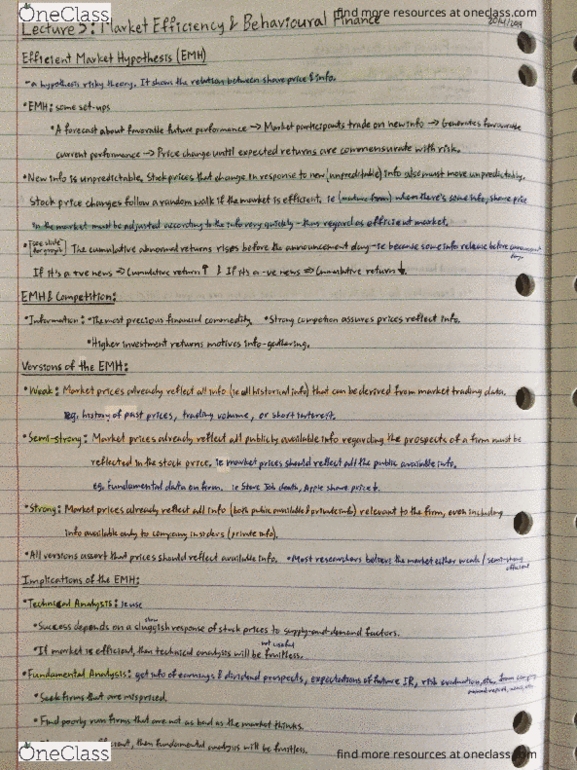 OneClass
find more resources at oneclass.com
Lecture 5: Market Efficiency & Behavioural Finance
Efficient Market Hypothesis (EMH)
- a hypothesis risky theory. It shows the relation between share price & info.
• EMH: some set-ups
• A forecast about favorable future performance → Market participants trade on new info → Generates favourable
current performance → Price change until expected returns are commensurate with risk.
• New info is unpredictable. Stock prices that change in response to new (unpredictable) info also must move unpredictably.
Stock price changes follow a random walk if the market is efficient. ie when there's some info, share price
in the market must be adjusted according to the info very quickly - thus regard as efficient market.
• [see slide for graph] The cumulative abnormal returns rises before the announcement day - ie because some info release before announcement day
If it's a +ve news ⇒ Cumulative return ↑ & If it's a -ve news ⇒ Cumulative return ↓.
EMH & Competition:
• Information: • The most precious financial commodity. • Strong competion assures prices reflect info.
• Higher investment returns motives info-gathering.
Versions of the EMH:
• Weak: Market prices already reflect all info (ie all historical info) that can be derived from market trading data.
eg. history of past prices, trading volume, or short interest.
• Semi-strong: Market prices already reflect all publicly available info regarding the prospects of a firm must be
reflected in the stock price. ie market prices should reflect all the public available info.
eg. Fundamental data on firm. ie Steve Job death, Apple share price ↓.
• Strong: Market prices already reflect all info (both public available & private info) relevant to the firm, even including
info available only to company insiders (private info).
• All versions assert that prices should reflect available info. • Most researchers believe the market either weak / semi-strong efficient
Implications of the EMH:
• Technical Analysis: ie use
slow
• Success depends on a sluggish response of stock prices to supply-and-demand factors.
not useful
• If market is efficient, then technical analysis will be fruitless.
• Fundamental Analysis: get info of earnings & dividend prospects, expectations of future IR, risk evaluation, etc. from
• Seek firms that are mispriced.
• Find poorly run firms that are not as bad as the market thinks.
efficient, then fundamental analysis will be fruitless.
OneClass
find more resources at oneclass.com